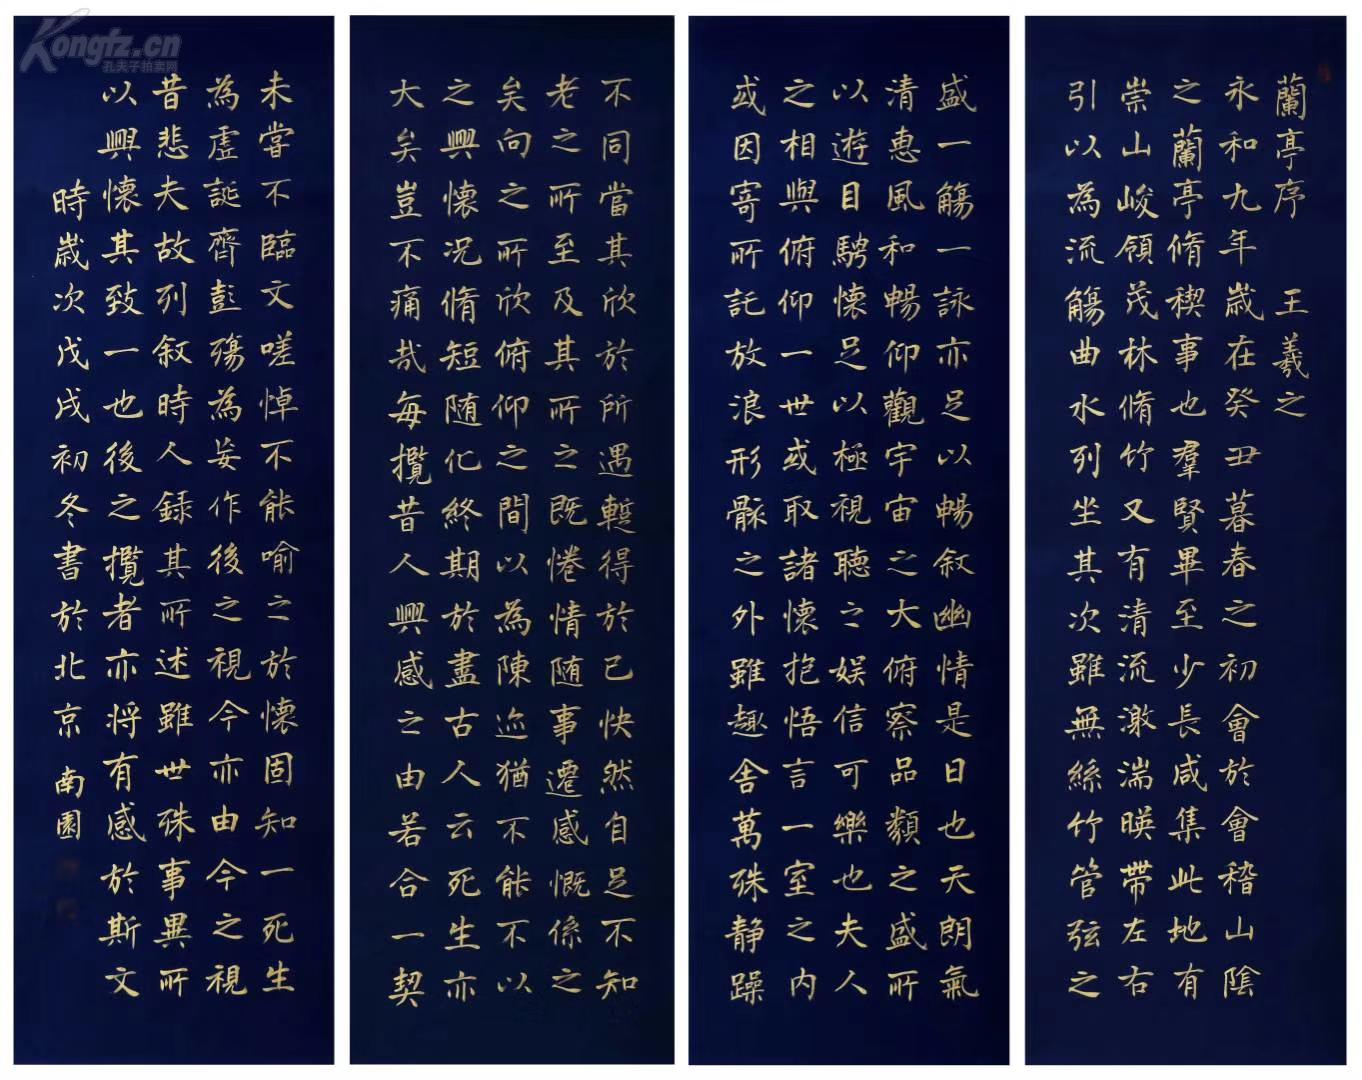 蘭亭序 王羲之
永和九年歲在癸丑暮春之初會於會稽山陰
之蘭亭脩稧事也羣賢畢至少長咸集此地有
崇山峻領茂林脩竹又有清流激湍暎帶左右
引以為流觴曲水列坐其次雖無絲竹管弦之
盛一觴一詠亦足以暢叙幽情是日也天朗氣
清惠風和暢仰觀宇宙之大俯察品類之盛所
以遊目騁懷足以極視聽之娱信可樂也夫人
之相與俯仰一世或取諸懷抱悟言一室之内
或因寄所託放浪形骸之外雖趣舍萬殊静躁
不同當其欣於所遇暫得於己快然自足不知
老之所至及其所之既惓情随事遷感慨係之
矣向之所欣俯仰之間以為陳迹猶不能不以
之興懷况脩短随化終期於盡古人云死生亦
大矣豈不痛哉每攬昔人興感之由若合一契
未甞不臨文嗟悼不能喻之於懷固知一死生
為虛誕齊彭殤為妄作後之視今亦由今之視
昔悲夫故列叙時人録其所述雖世殊事異所
以興懷其致一也後之攬者亦将有感於斯文
時歲次戊戌初冬書於北京 南園
Kongfz.cn
孔夫子拍卖网